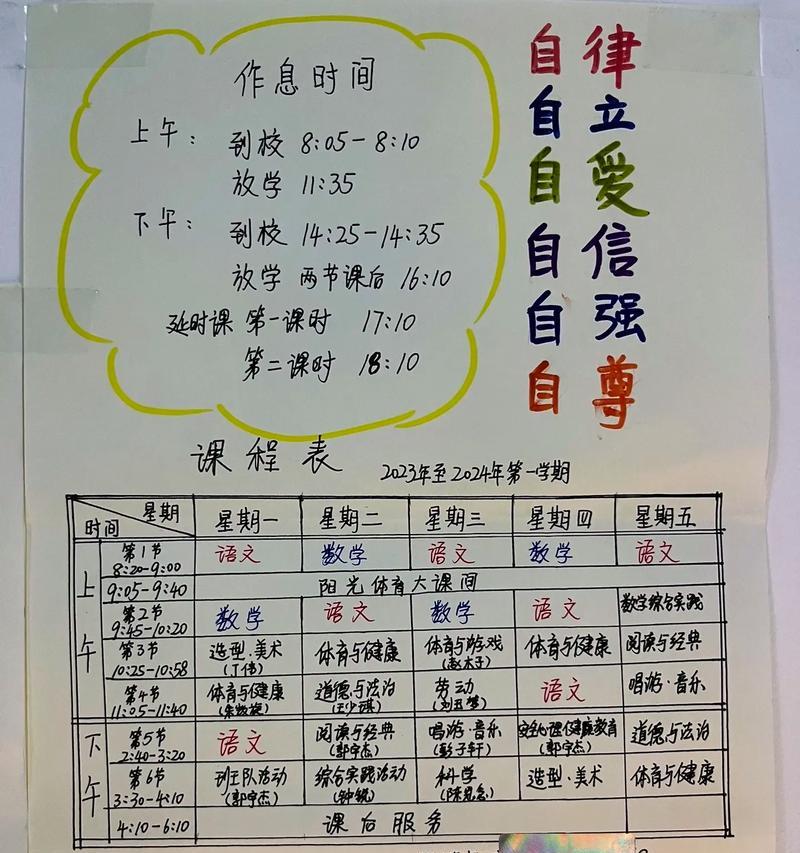 作息时间
上午： 到校 8:05-8:10
放学 11:35
下午： 到校 14:25-14:35
放学 两节课后 16:10
延时课 第一课时 17:10
第二课时 18:10
自律
自立
自爱
自信
自强
自尊
课程表 2023年至2024年第一学期
时间 星期 星期一 星期二 星期三 星期四 星期五
上午
第1节 8:20-9:00 语文 数学 语文 数学 语文
9:05-9:40 阳光体育大课间
第2节 9:45-10:20 数学 语文 数学 语文 数学综合实践
第3节 10:25-10:58 造型·美术 (丁伟) 体育与健康 体育与游戏 体育与健康 阅读与经典
第4节 11:05-11:40 体育与健康 道德与法治 劳动 语文 唱游·音乐
下午
第5节 2:40-3:20 语文 阅读与经典 (郭宇杰) 唱游·音乐 (彭子轩) 安全心理健康教育 (郭宇杰) 道德与法治
第6节 3:30-4:10 班队活动 (郭宇杰) 综合实践活动 (钟锐) 科学 造型·美术 体育与健康
4:10-6:10 课后服务